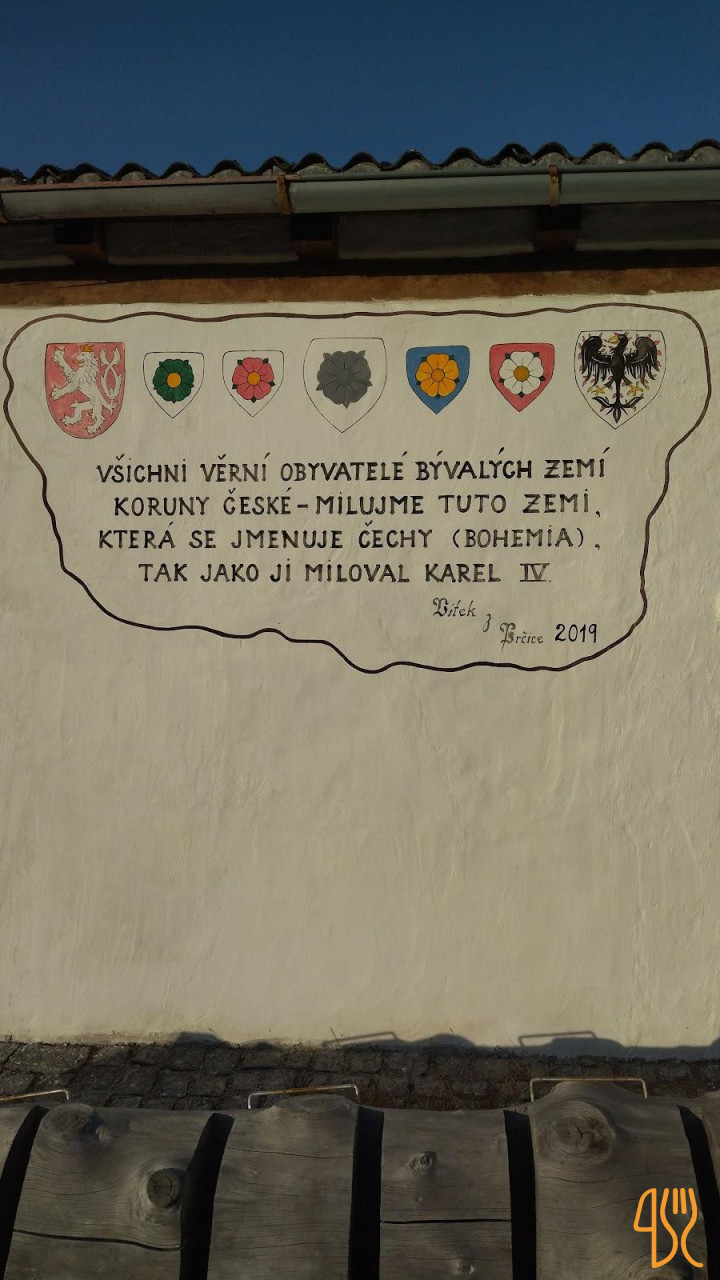 VŠICHNI VĚRNÍ OBYVATELÉ BÝVALÝCH ZEMÍ
KORUNY ČESKÉ - MILUJME TUTO ZEMI,
KTERÁ SE JMENUJE ČECHY (BOHEMIA),
TAK JAKO JI MILOVAL KAREL IV.
Vítek z Prčice 2019